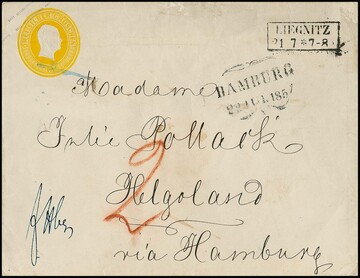 LIEGNITZ
21 7 *7-8
HAMBURG
Madame
Julie Pollack
Helgoland
via Hamburg
2